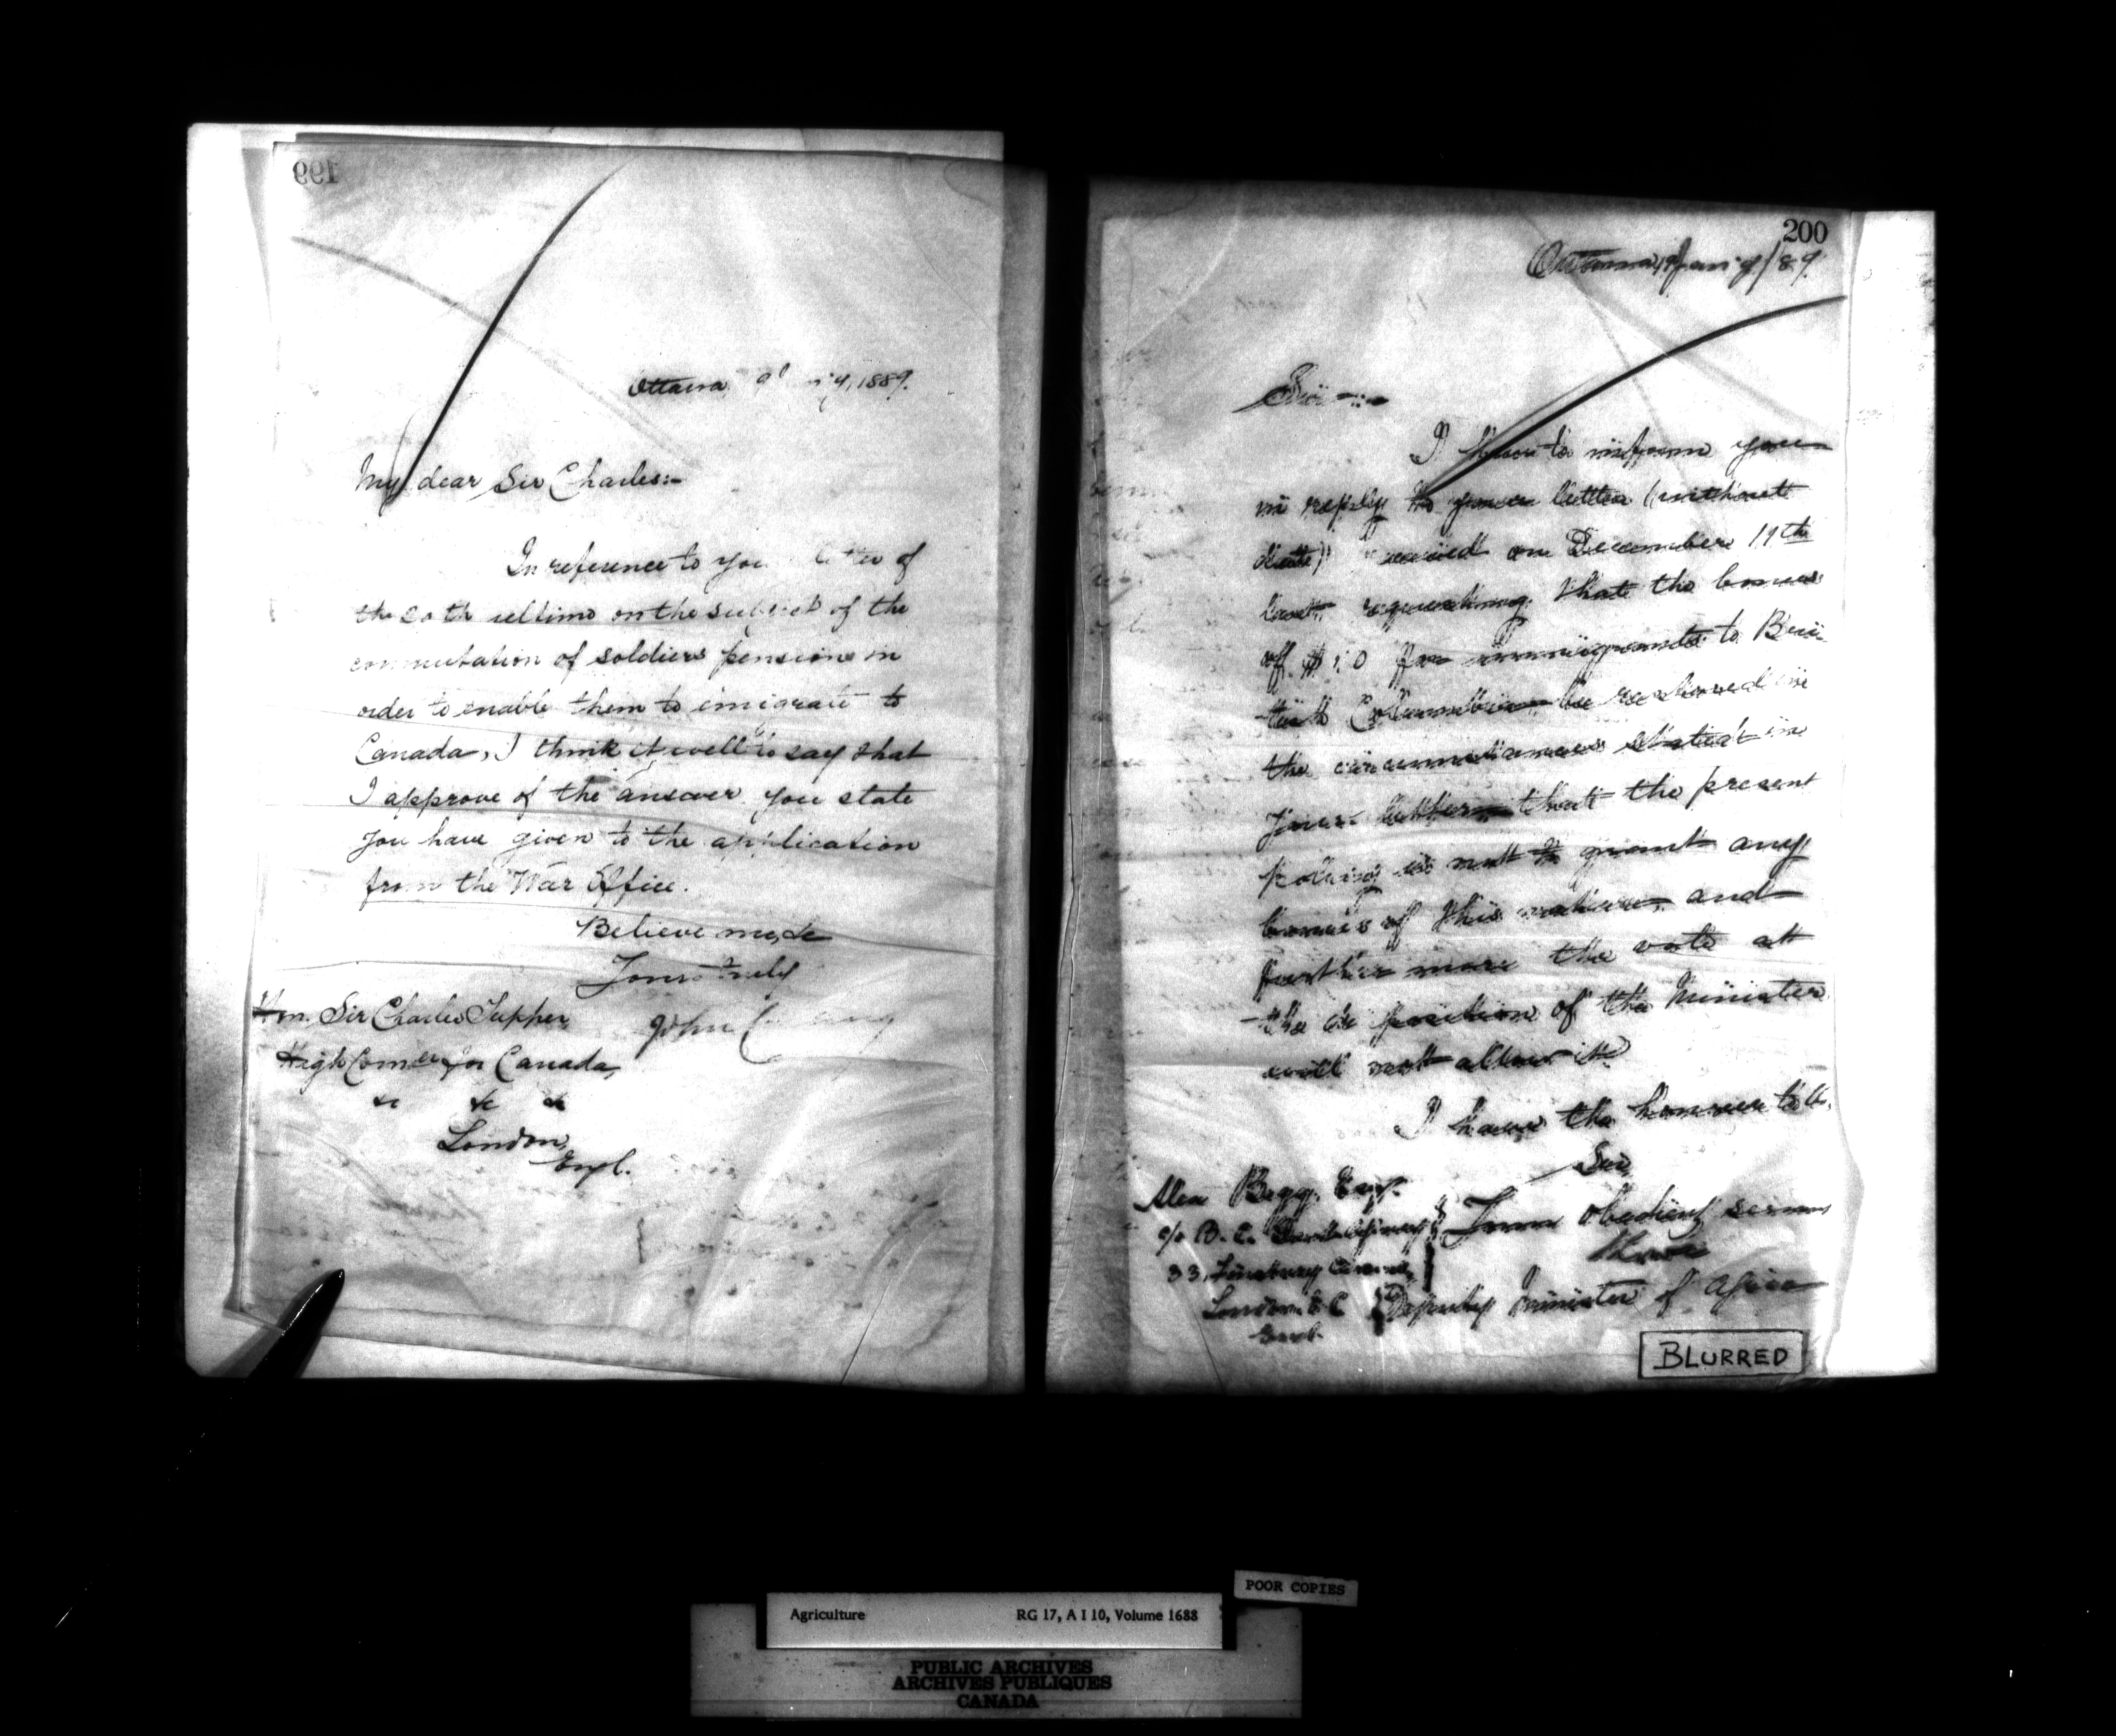 199
Ottawa, 1889.
My dear Sir Charles:-
In reference to your letter of
the 20th ultimo on the subject of the
commutation of soldiers pensions in
order to enable them to emigrate to
Canada, I think it well to say that
I approve of the answer you state
you have given to the application
from the War Office.
Believe me, &c
Yours truly
John
Hon. Sir Charles Tupper
High Comer for Canada,
&c &c &c
London,
Engl.
200
Ottawa, Jan 9/89.
Sir:-
I have to inform you
in reply to your letter (without
date) received on December 19th
last requesting that the bonus
of $10 for immigrants to Bri-
tish Columbia be restored in
the circumstances stated in
your letter, that the present
policy is not to grant any
bonus of this nature, and
further more the vote at
the disposition of the Minister
will not allow it.
I have the honour to be,
Sir,
Your obedient servant
Deputy Minister of Agric
Alex Begg, Esq.
c/o B. C. Agency
33, Finsbury Circus,
London E C
Engl.
BLURRED
POOR COPIES
Agriculture RG 17, A I 10, Volume 1688
PUBLIC ARCHIVES
ARCHIVES PUBLIQUES
CANADA